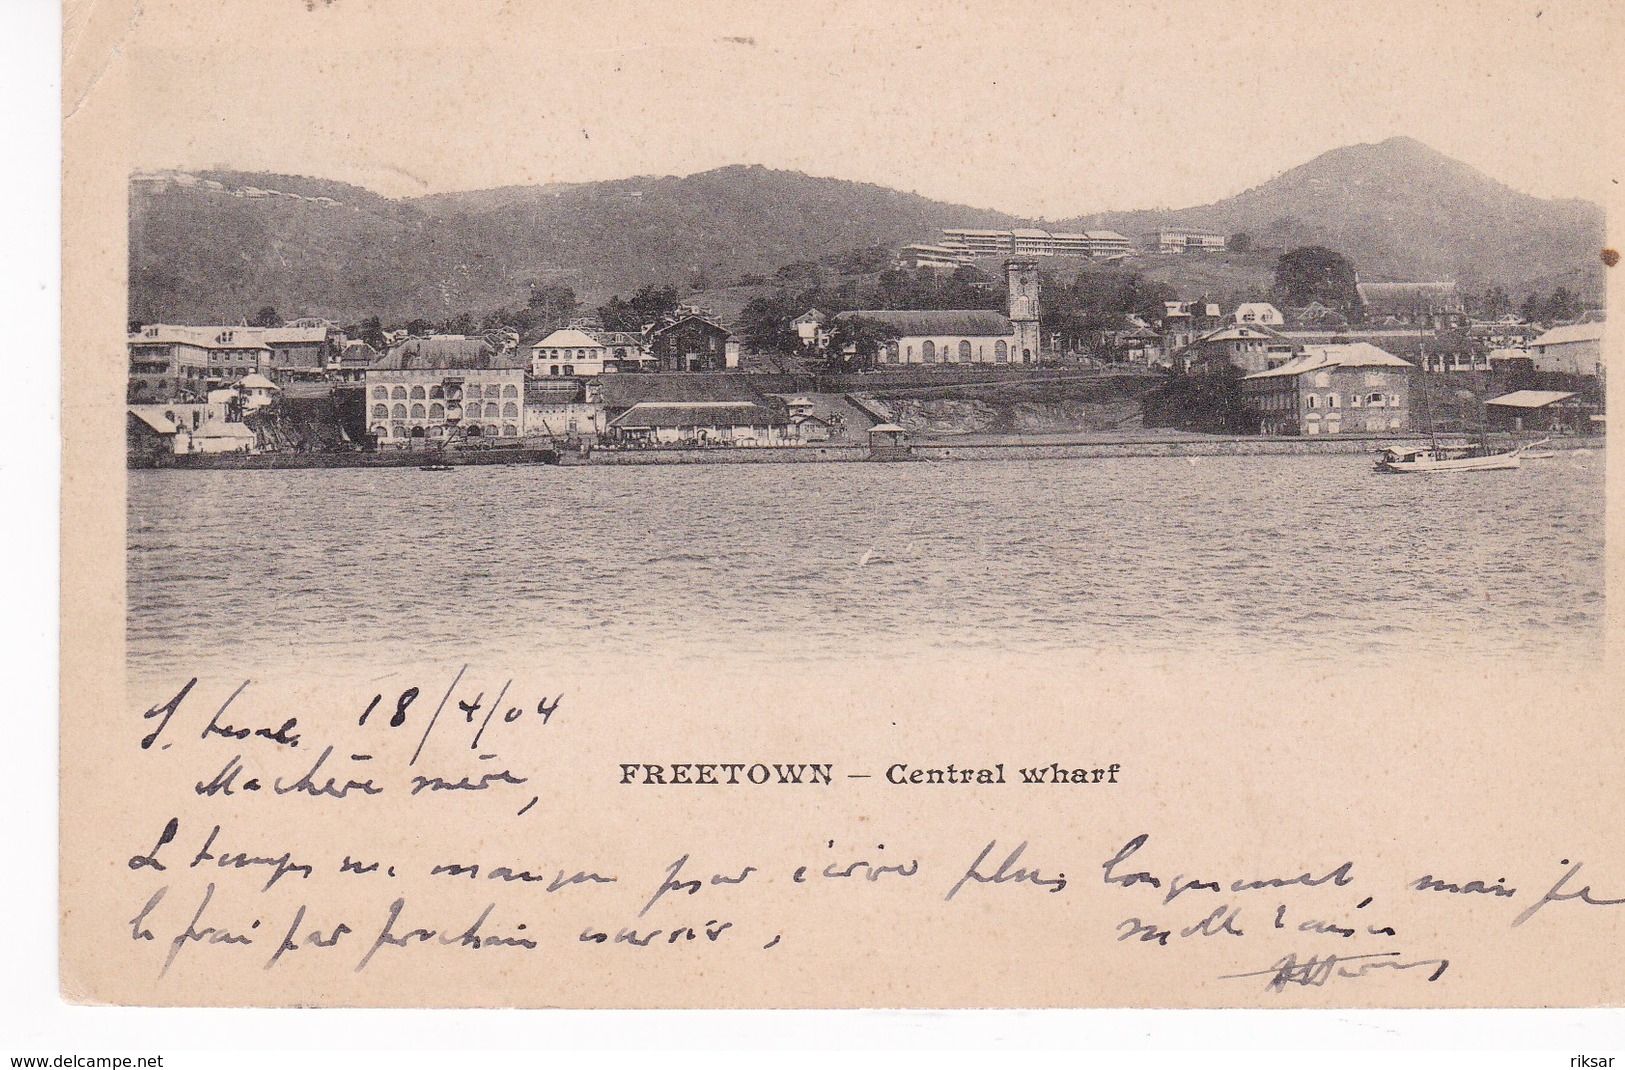 18/4/04
Ma chère mère,
FREETOWN — Central wharf
Le temps me manque pour écrire plus longuement, mais je
le ferai par prochain courrier,
mille baisers
www.delcampe.net
riksar